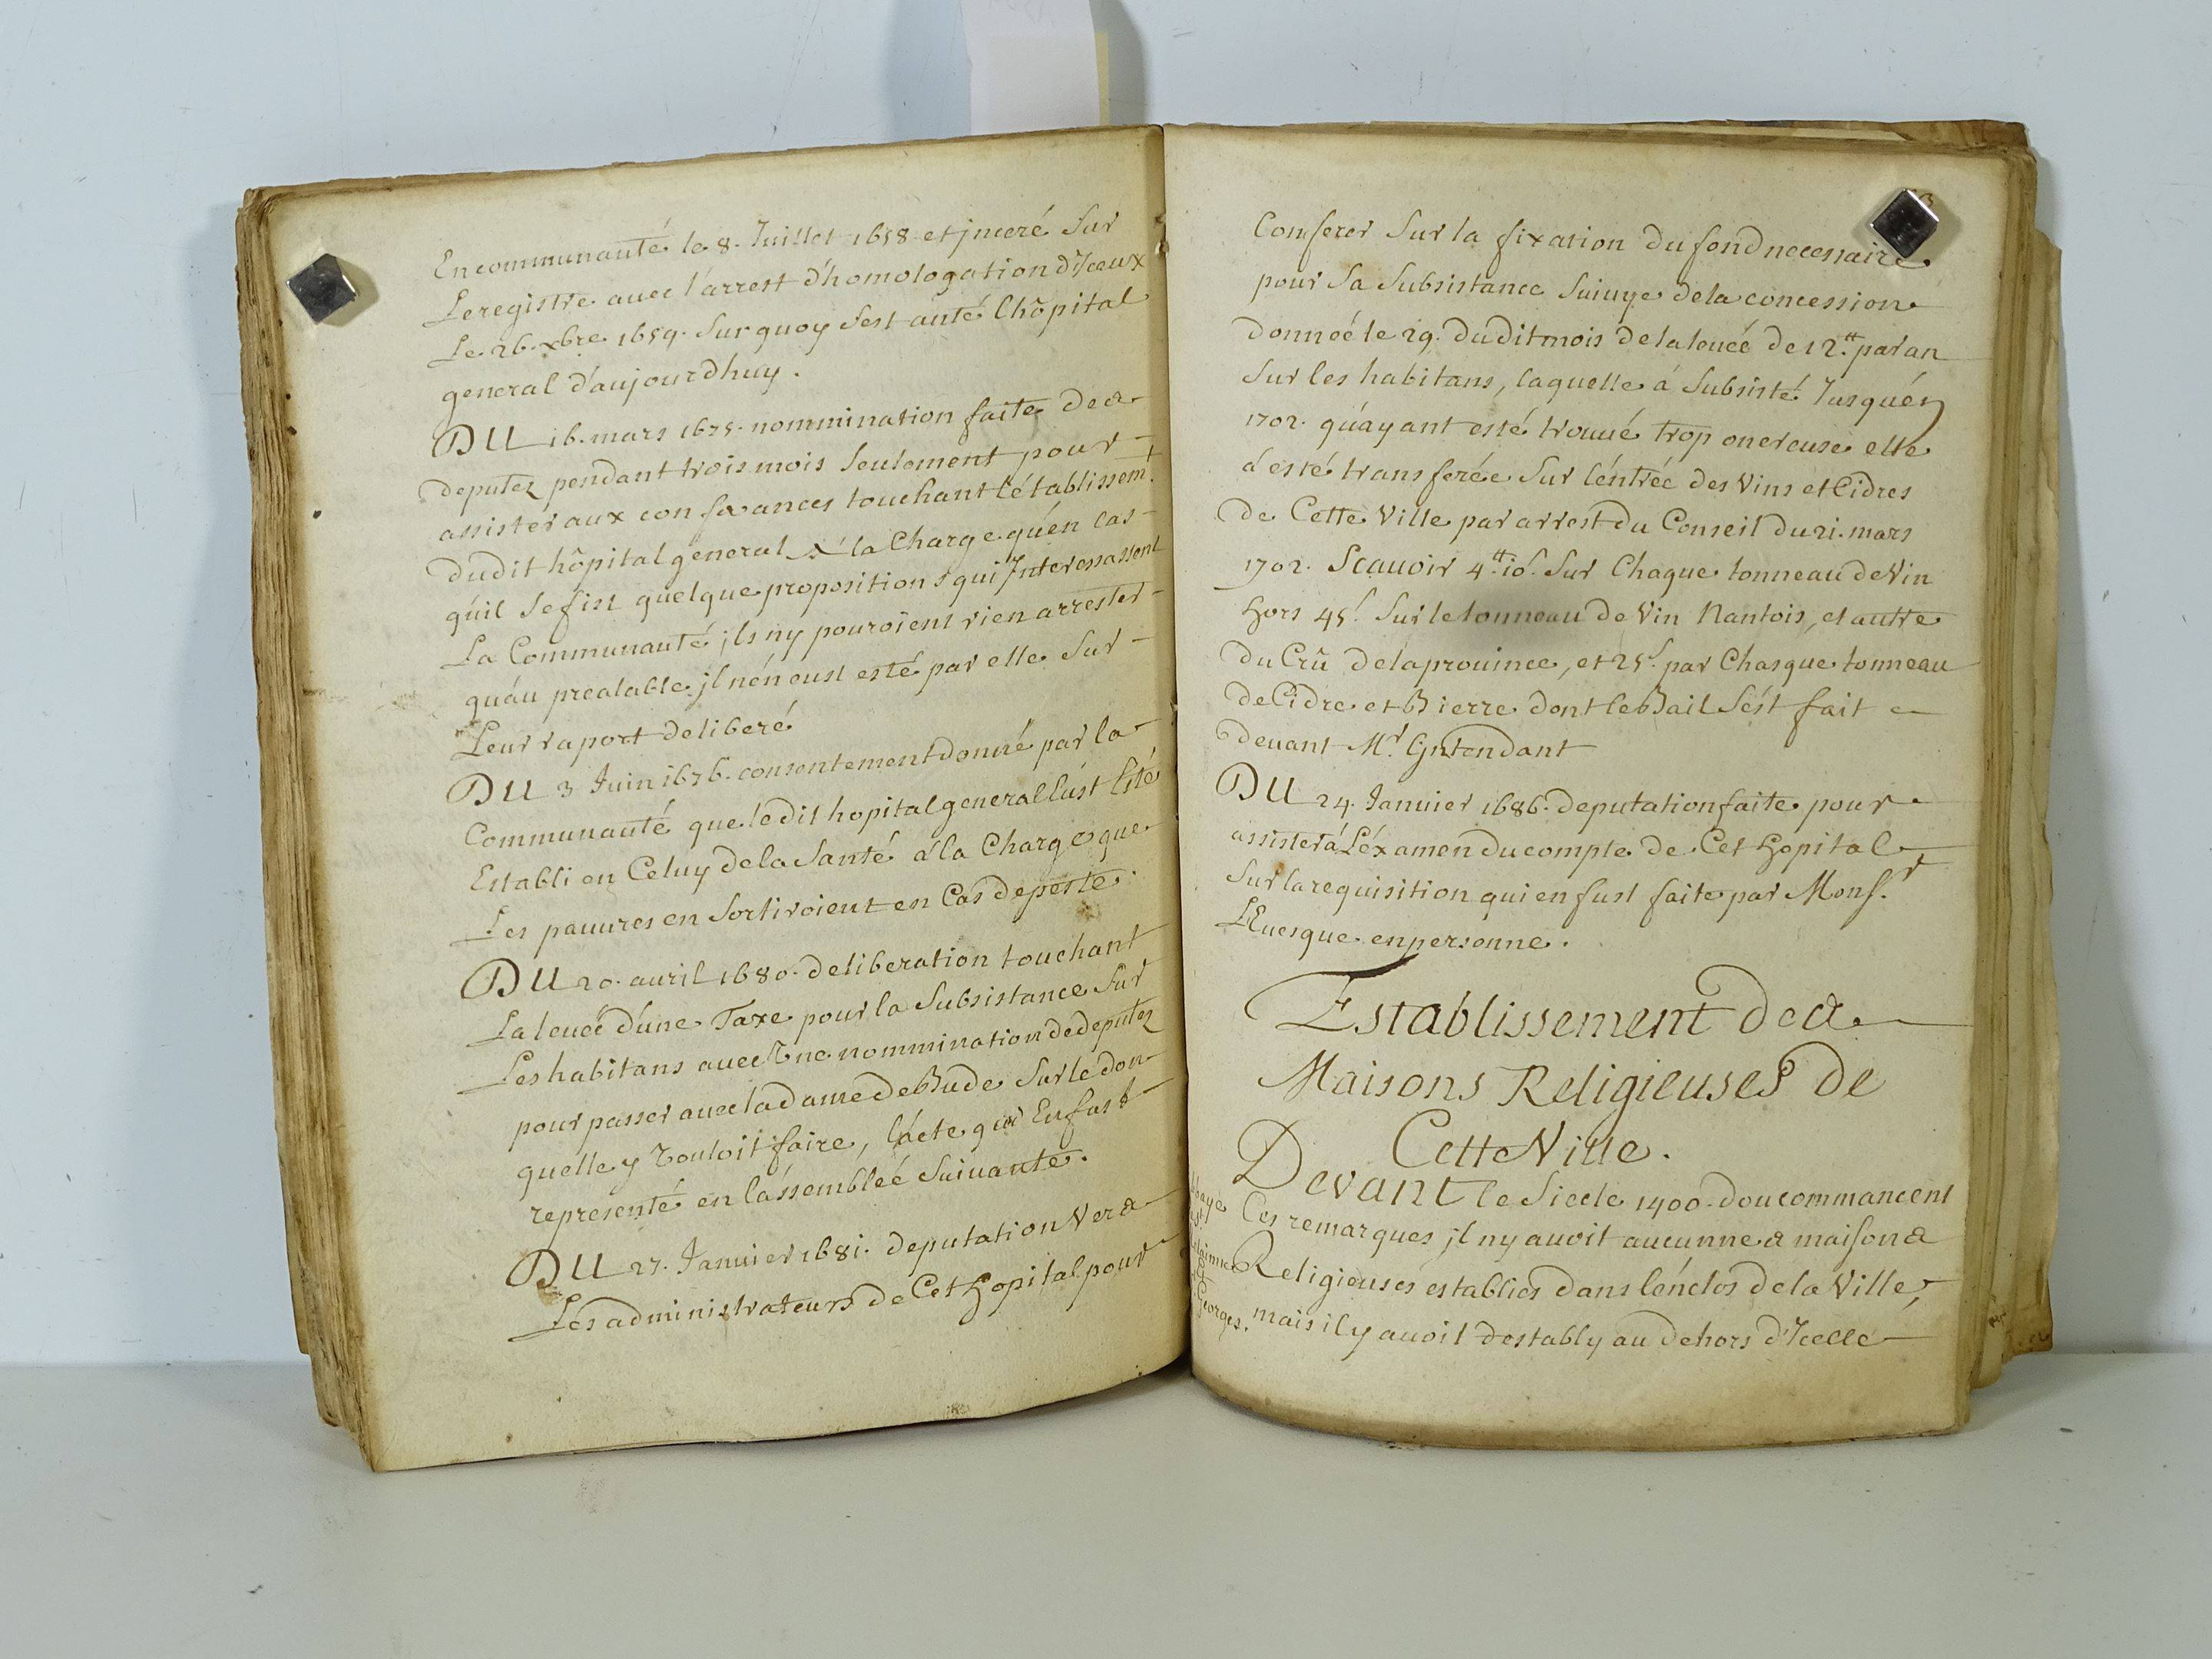 En communauté le 8. Juillet 1658. et jnceré Sur
Le registre auec l'arrest d'homologation d'Iceux
Le 26. xbre. 1659. Sur quoy s'est anté l'hôpital
general d'aujourdhuy.
DU 16. mars 1675. nommination faite de
deputez pendant trois mois seulement pour
assister aux conferances touchant l'établissemt.
dudit hôpital general à la Charge qu'en cas
qu'il se fist quelque propositions qui Interessassent
La Communauté, jls ny pouroient rien arrester
qu'au prealable jl n'en eust esté par elle Sur
Leur raport deliberé
DU 3 Juin 1676. consentement donné par la
Communauté que ledit hopital general fust Esté
Establi en Celuy de la Santé à la Charge que
Les pauures en Sortiroient en Cas de peste.
DU 20. auril 1680. deliberation touchant
La leueé d'une Taxe pour la Subsistance Sur
Les habitans auec Vne nommination de deputez
pour passer auec la dame de Bude Sur le don
qu'elle y Vouloit faire, l'acte qui En fust
representé en l'assembleé Suivante.
DU 27. Januier 1681. deputation Vers
Les administrateurs de Cet Hopital pour
Conferer Sur la fixation du fond necessaire
pour Sa Subsistance Suiuye de la concession
donneé le 29. dudit mois de la leueé de 12.tt par an
Sur les habitans, laquelle à Subsisté Jusqu'en
1702. qu'ayant esté trouué trop onereuse elle
à esté transferée Sur l'entreé des Vins et Cidres
de Cette Ville par arrest du Conseil du 21. mars
1702. Scauoir 4.tt 10.s Sur Chaque tonneau de Vin
Hors 45.s Sur le tonneau de Vin Nantois, et autre
du Crû de la prouince, et 25.s par Chasque tonneau
de Cidre et Bierre dont le Bail s'est fait
deuant Mr. Gntendant
DU 24. Januier 1686. deputation faite pour
assister à L'éxamen du compte de Cet Hopital
Sur la requisition qui en fust faite par Monsr.
L'Euesque en personne.
Establissement des
Maisons Religieuses de
Cette Ville.
Devant le Siecle 1400. dou commancent
Ces remarques, jl ny auoit aucunnes maisons
Religieuses establies dans l'enclos de la Ville,
mais il y auoit d'estably au dehors d'Icelle
Georges.